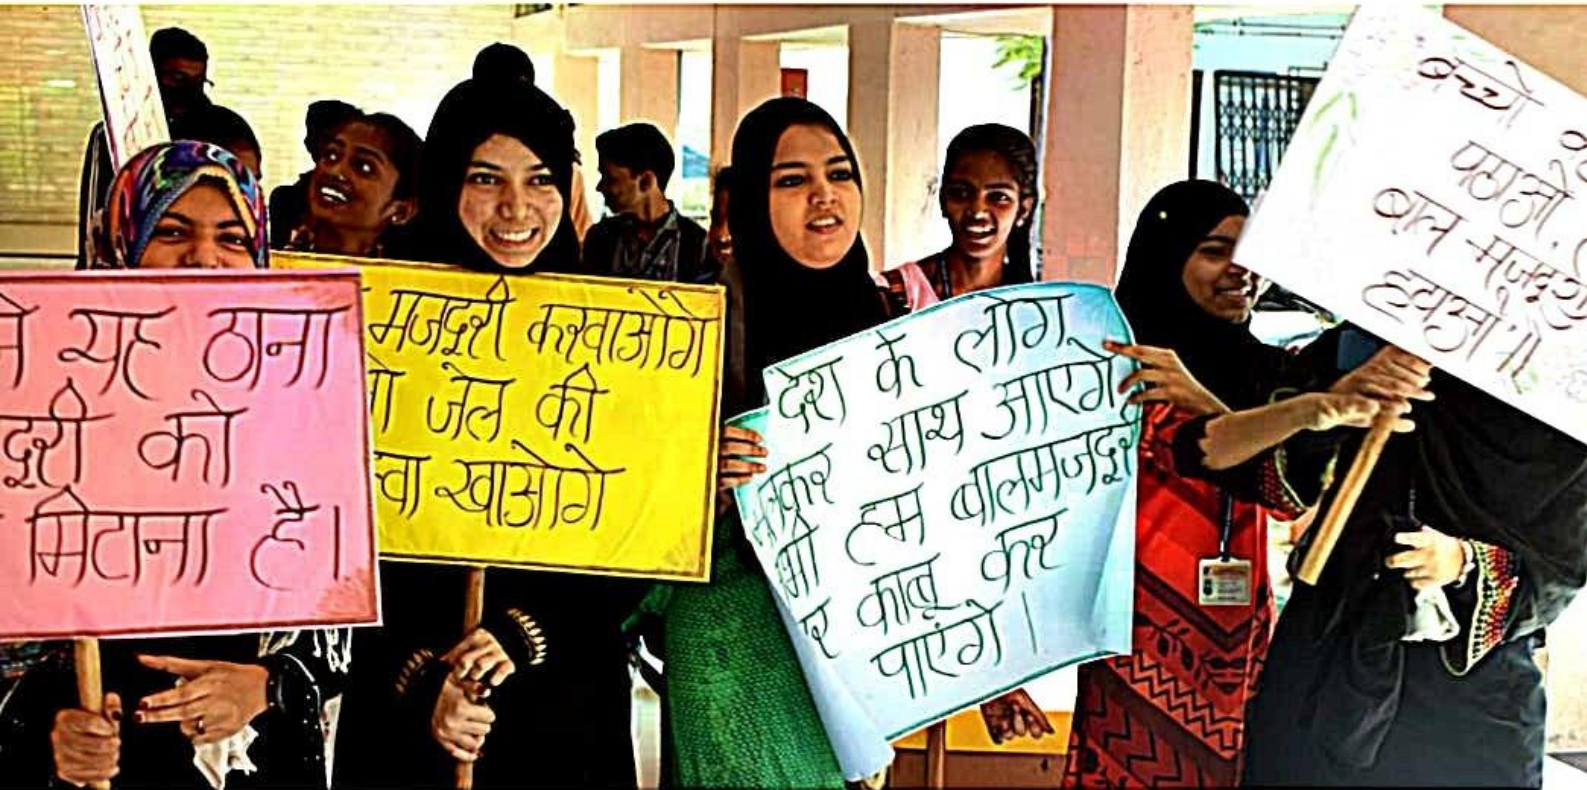 यह ठाना
को
मिटाना है।
मजदूरी करवाओगे
जेल की
खाओगे
देश के लोग
साथ आएगे
हम बालमजदूरी
काबू कर
पाएंगे।
बच्चो
पढाओ,
बाल-मजदूरी
हटाओ"।।